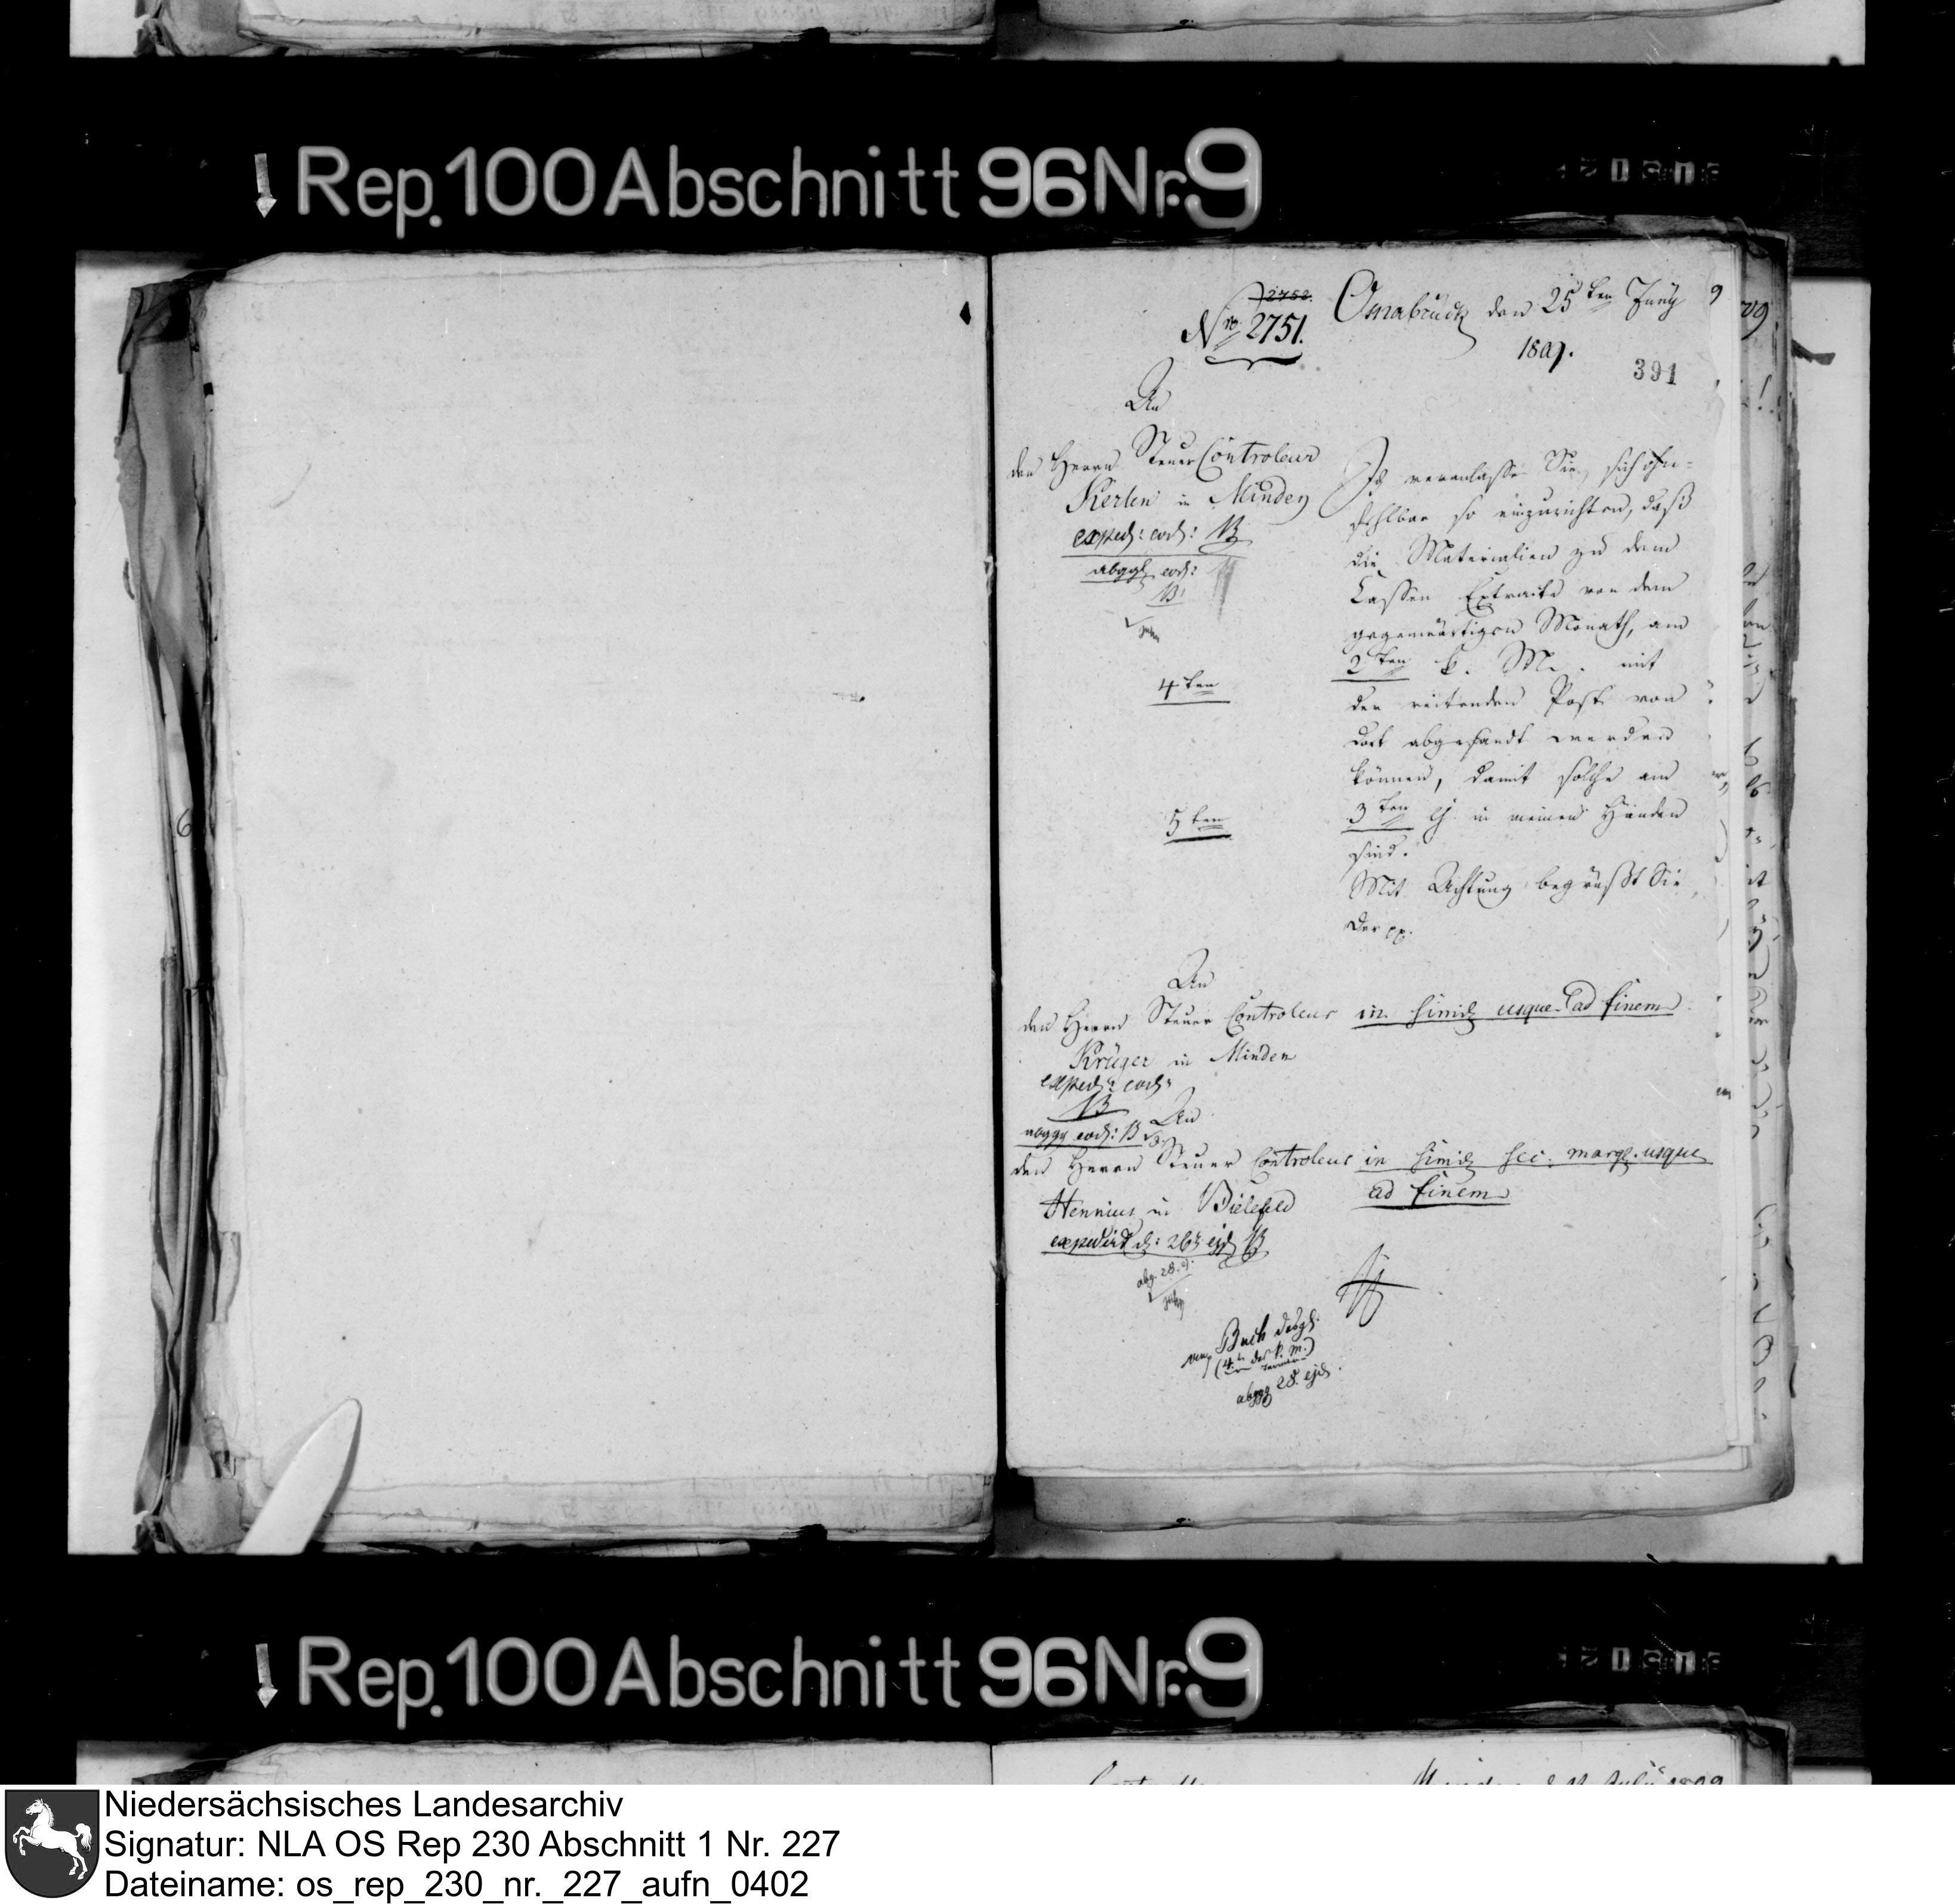 Rep. 100 Abschnitt 96 Nr. 9
2752.
Nro 2751.
Osnabrück den 25ten Juny
1809.
391
An
den Herrn Steuer Controleur
Kerlen in Minden
exped: eod: B
abggl eod:
B
4ten
5ten
Ich veranlasse Sie, sich ohn-
fehlbar so einzurichten, daß
die Materialien zu dem
Cassen Extracte von dem
gegenwärtigen Monath, am
2ten k. M. mit
der reitenden Post von
dort abgesandt werden
können, damit solche am
3ten ej in meinen Händen
sind.
Mit Achtung begrüßt Sie
Der pp.
An
den Herrn Steuer Controleur
Krüger in Minden
exped: eod:
B
abggl eod: B
in simil usque ad finem
An
den Herrn Steuer Controleur
Hennius in Bielefeld
expedirt d: 26t ejd B
abg. 28. ej.
in simil sec. margl. usque
ad finem
Buch desgl.
(4t des k. M.)
abggl 28. ejd.
Rep. 100 Abschnitt 96 Nr. 9
Niedersächsisches Landesarchiv
Signatur: NLA OS Rep 230 Abschnitt 1 Nr. 227
Dateiname: os_rep_230_nr._227_aufn_0402